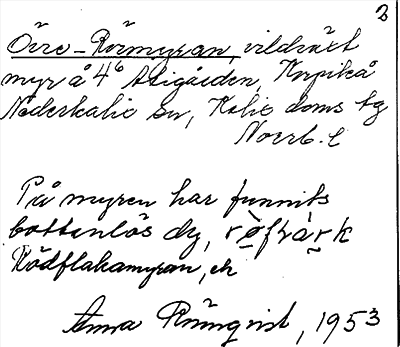 2
Övre-Rörmyran, vildväxt
myr å 4⁶ Stigården, Korpikå
Nederkalix sn, Kalix doms tg
Norrb. l
På myren har funnits
bottenlös dy,
Rödflakamyran, ch
Anna Rönnqvist, 1953